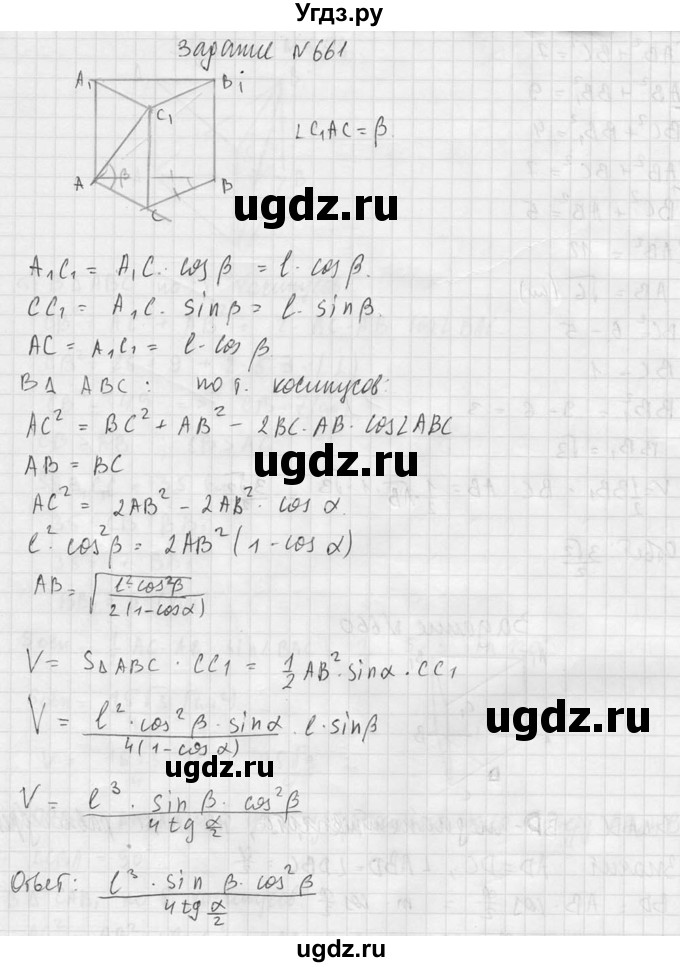 Угдз.ру
Задание №661
A₁
B₁
C₁
∠C₁AC = β.
A
β
B
C
uгдз.ru
A₁C₁ = A₁C · cos β = l · cos β.
CC₁ = A₁C · sin β = l · sin β.
AC = A₁C₁ = l · cos β
В Δ ABC: по т. косинусов:
AC² = BC² + AB² - 2BC · AB · cos∠ABC
AB = BC
uгдз.ru
AC² = 2AB² - 2AB² · cos α.
l² · cos²β = 2AB² (1 - cos α)
AB = √(l² cos²β / 2(1 - cos α))
V = SΔABC · CC₁ = 1/2 AB² · sin α · CC₁
V = l² · cos²β · sin α / 4(1 - cos α) · l · sin β
uгдз.ru
uгдз.ru
V = l³ · sin β · cos²β / 4 tg α/2
Ответ: l³ · sin β · cos²β / 4 tg α/2
uгдз.ru
uгдз.ru